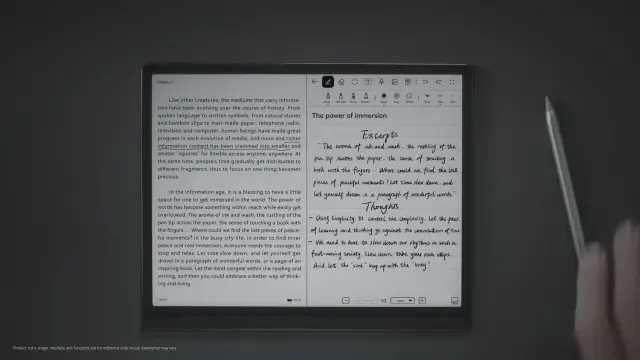 Chapter 1
Like other creatures, the mediums that carry informa-
tion have been evolving over the course of history. From
spoken language to written symbols, from natural stones
and bamboo slips to man-made paper, telephone radio,
television and computer, human beings have made great
progress in each evolution of media, and more and richer
information content has been crammed into smaller and
smaller "squares" for flexible access anytime, anywhere. At
the same time, people's time gradually get distributed to
different fragments; thus to focus on one thing becomes
precious.
In the information age, it is a blessing to have a little
space for one to get immersed in the world. The power of
words has become something within reach while easily get
overlooked. The aroma of ink and wash, the rustling of the
pen tip across the paper, the sense of touching a book with
the fingers... Where could we find the lost pieces of peace-
ful moments? In the busy city life, in order to find inner
peace and real immersion, everyone needs the courage to
stop and relax. Let time slow down, and let yourself get
drown in a paragraph of wonderful words, or a page of an
inspiring book. Let the mind congeal within the reading and
writing, and then you could embrace a better way of think-
ing and living
The power of immersion
Excerpts
"The aroma of ink and wash, the rustling of the
pen tip across the paper, the sense of touching a
book with the fingers... Where could we find the lost
pieces of peaceful moments? Let time slow down, and
let yourself drown in a paragraph of wonderful words."
Thoughts
- Using simplicity to control the complexity. Let the pace
of learning and thinking go against the of time
- We need to dare to slow down our rhythms in such a
fast-moving society. Slow down. Take your own steps.
And let the "soul" keep up with the "body"
Product color, shape, interface and functions are for reference only. Actual experience may vary.